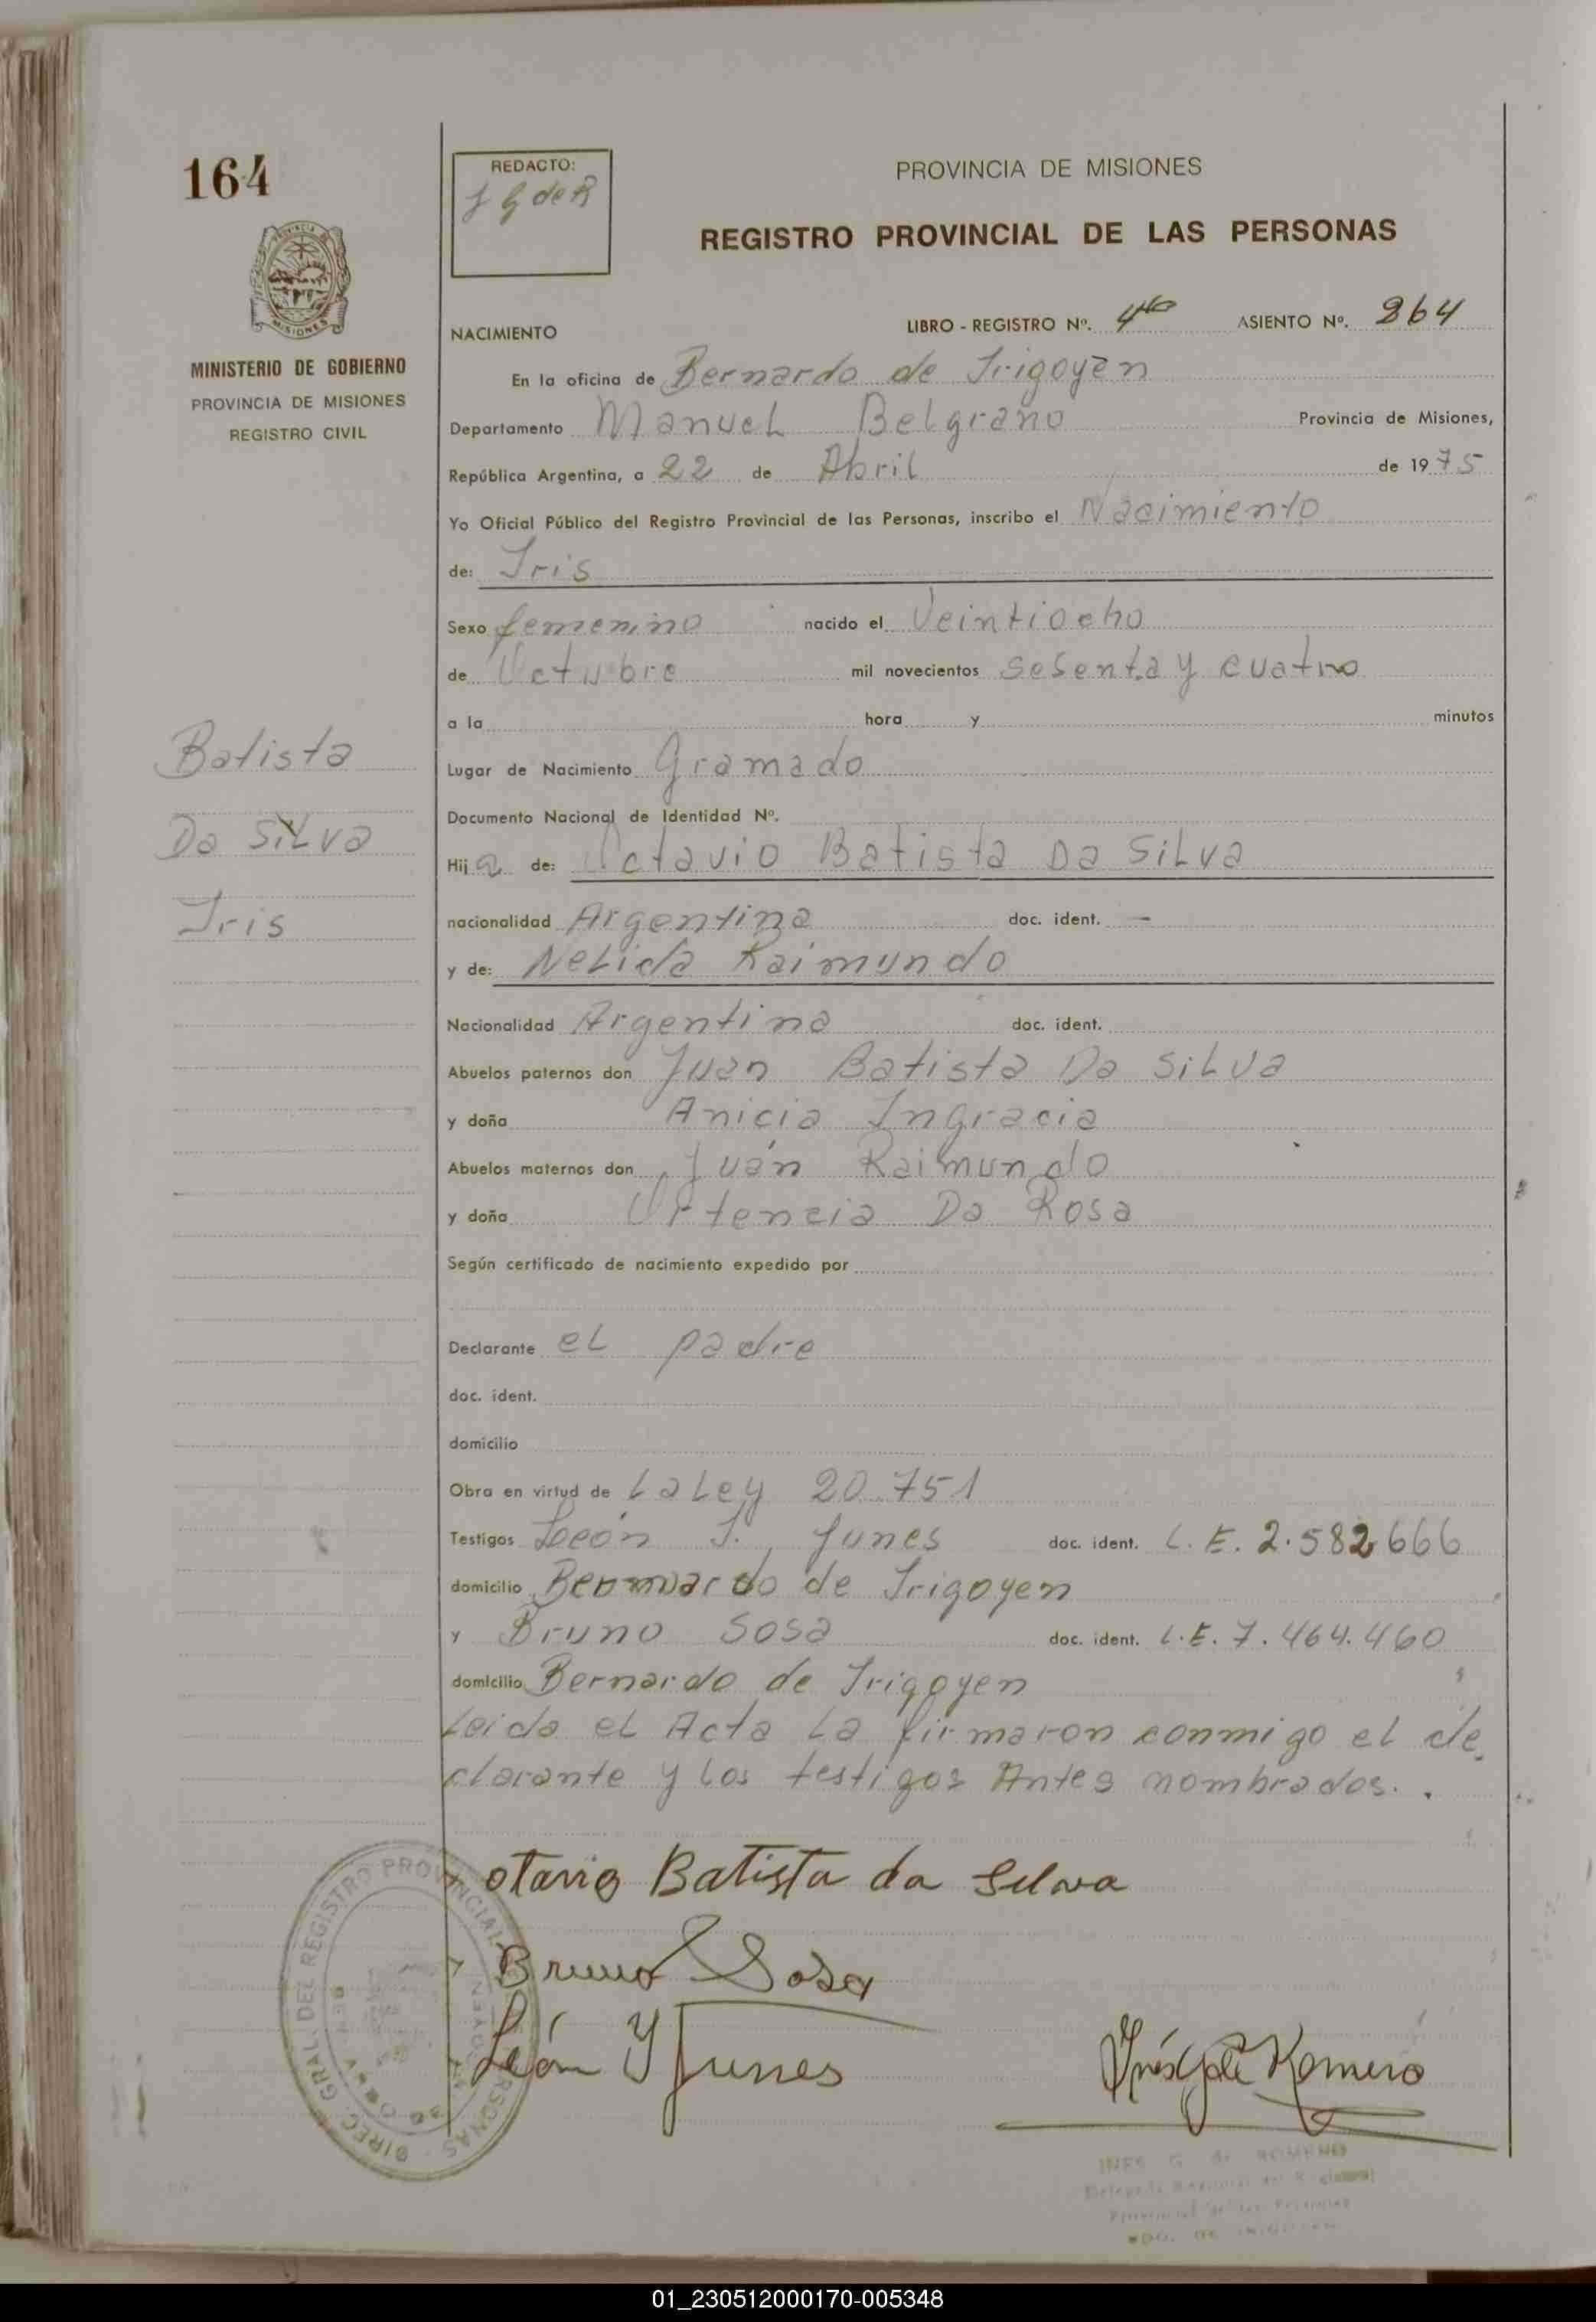 164
REDACTO:
J G de R
PROVINCIA DE MISIONES
REGISTRO PROVINCIAL DE LAS PERSONAS
PROVINCIA DE MISIONES
MINISTERIO DE GOBIERNO
PROVINCIA DE MISIONES
REGISTRO CIVIL
NACIMIENTO LIBRO - REGISTRO Nº. 4to ASIENTO Nº. 864
En la oficina de Bernardo de Irigoyen
Departamento Manuel Belgrano Provincia de Misiones,
República Argentina, a 22 de Abril de 1975
Yo Oficial Público del Registro Provincial de las Personas, inscribo el Nacimiento
de: Iris
Sexo femenino nacido el Veintiocho
de Octubre mil novecientos sesenta y cuatro
a la hora y minutos
Batista
Da Silva
Iris
Lugar de Nacimiento Gramado
Documento Nacional de Identidad Nº.
Hija de: Octavio Batista Da Silva
nacionalidad Argentina doc. ident. —
y de: Nelida Raimundo
Nacionalidad Argentina doc. ident.
Abuelos paternos don Juan Batista Da Silva
y doña Anicia Ingracia
Abuelos maternos don Juán Raimundo
y doña Ortencia Da Rosa
Según certificado de nacimiento expedido por
Declarante el padre
doc. ident.
domicilio
Obra en virtud de La Ley 20.751
Testigos León I. Junes doc. ident. L.E. 2.582666
domicilio Bernardo de Irigoyen
y Bruno Sosa doc. ident. L.E. 7.464.460
domicilio Bernardo de Irigoyen
Leida el Acta la firmaron conmigo el de
clarante y los testigos Antes nombrados..
otavio Batista da Silva
Bruno Sosa
León Y Junes
Inés G de Romero
DIREC. GRAL. DEL REGISTRO PROVINCIAL PERSONAS
INES G. de ROMERO
01_230512000170-005348